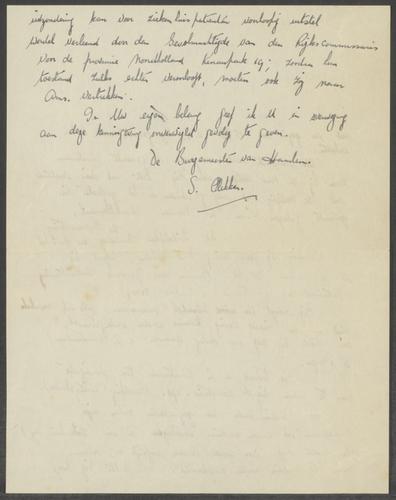 uitzondering kan voor ziekenhuispatienten voorloopig uitstel
worden verleend door den Gevolmachtigde van den Rijkscommissaris
voor de provincie Noordholland Kenaupark 19; zoodra hun
toestand zulks echter veroorlooft, moeten ook zij naar
Ams. vertrekken.
In Uw eigen belang geef ik U in overweging
aan deze kennisgeving onverwijld gevolg te geven.
De Burgemeester van Haarlem.
S. Plekker.